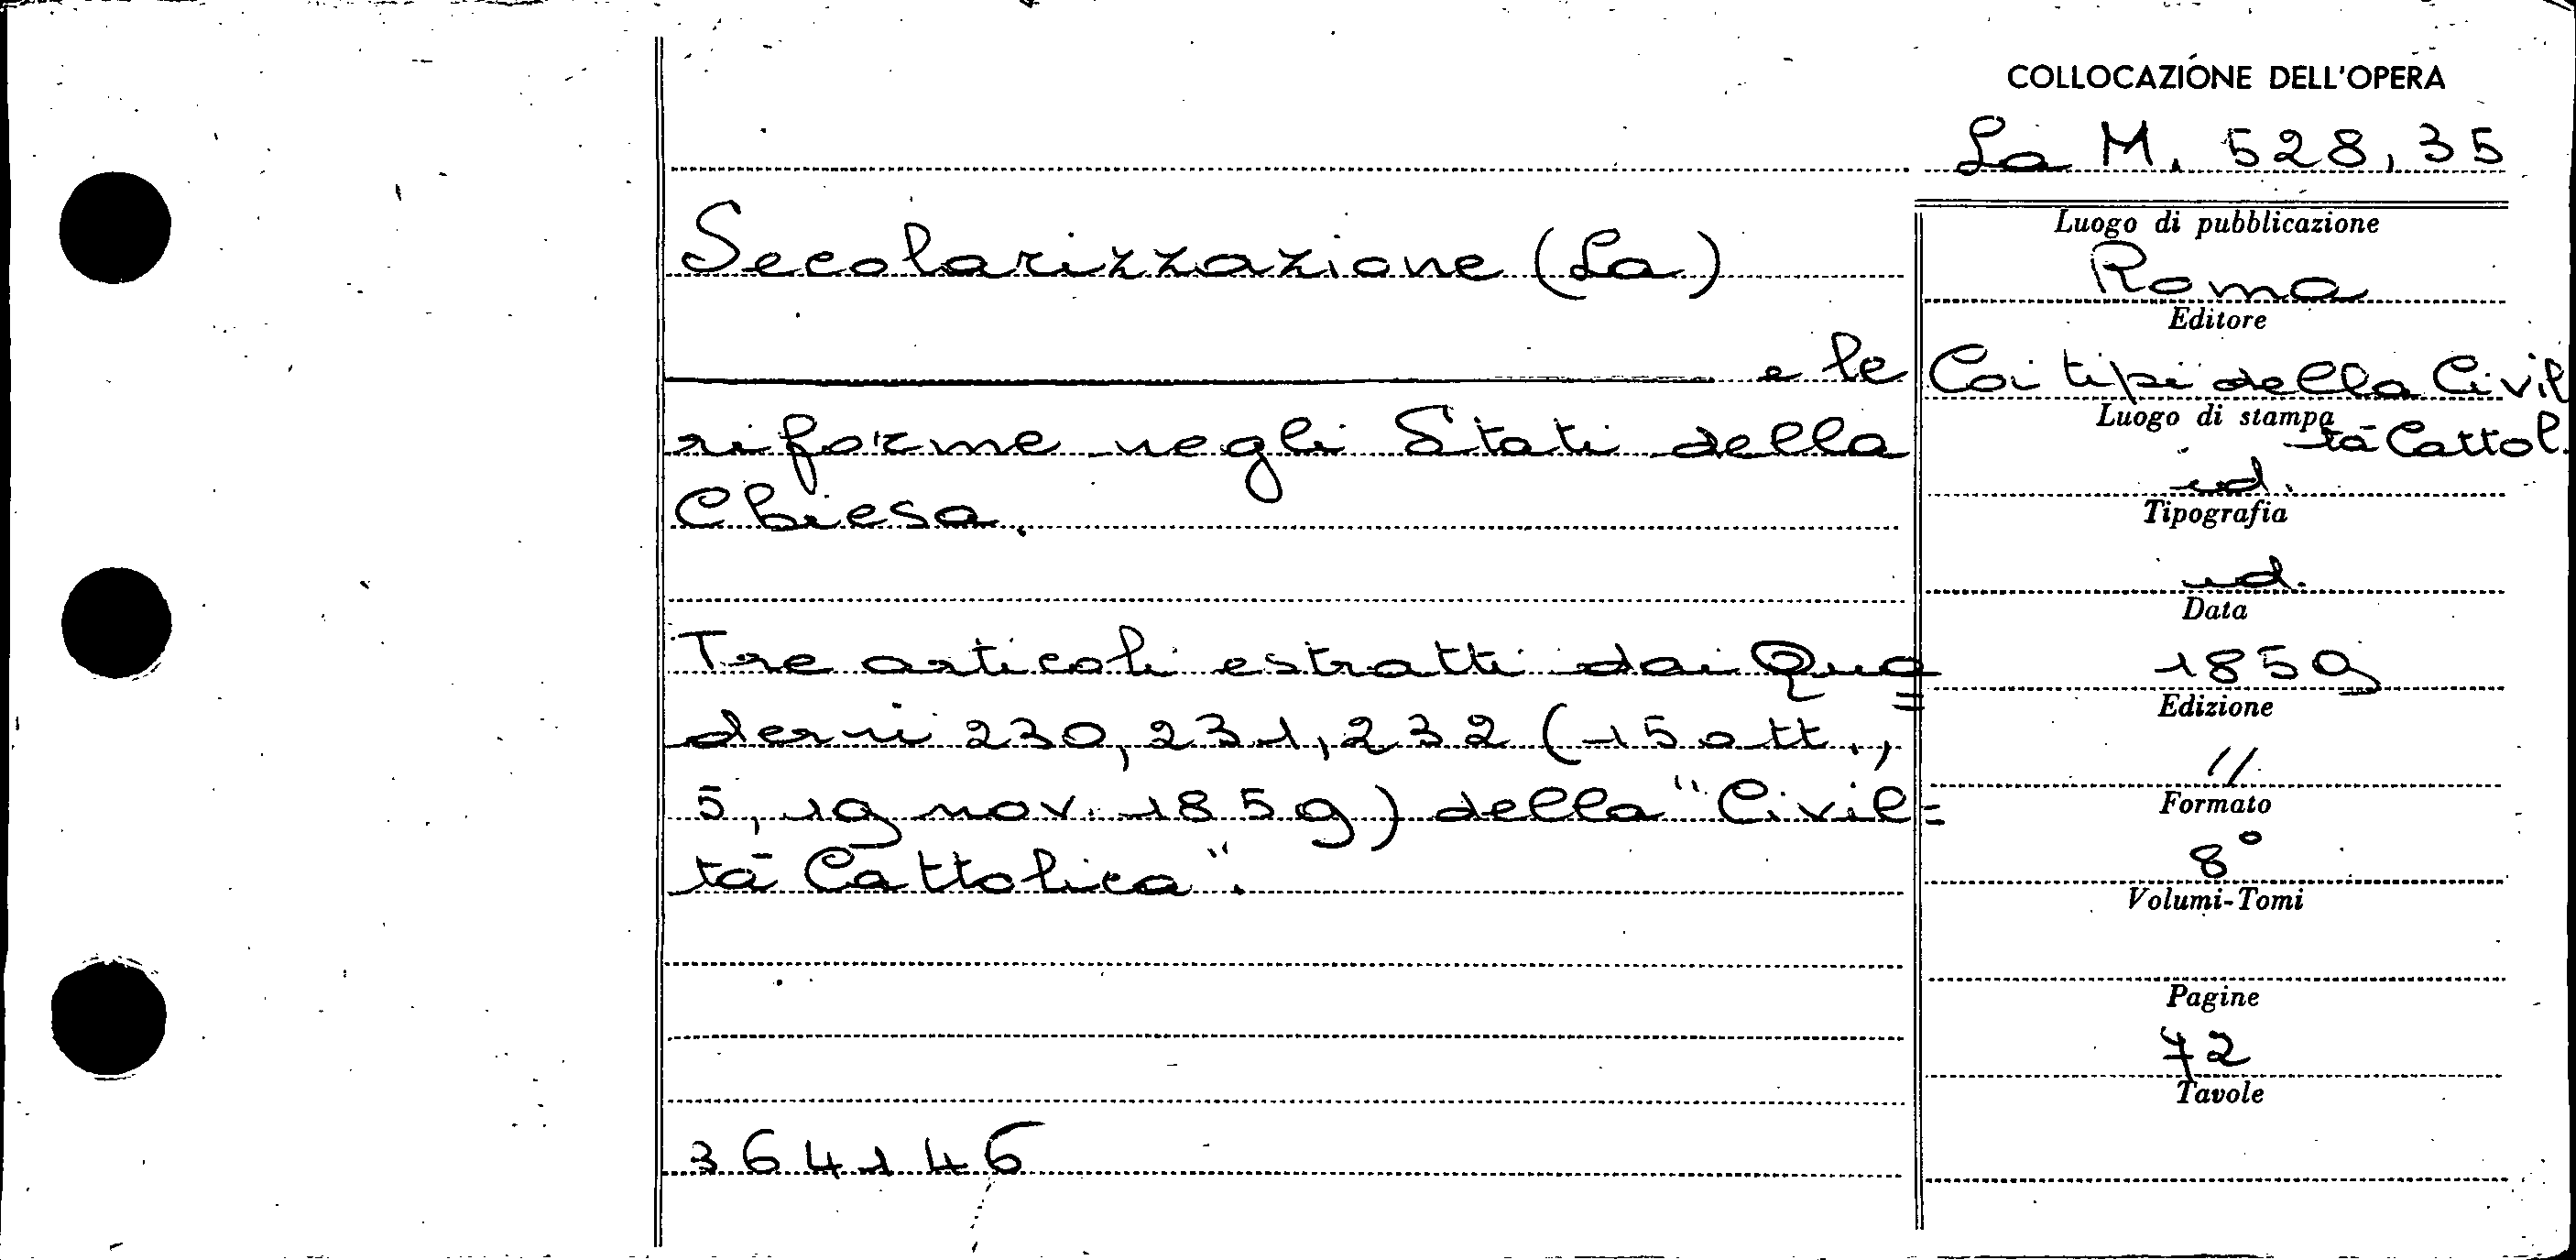 COLLOCAZIONE DELL'OPERA
La M. 528,35
Secolarizzazione (La)
e le
riforme negli Stati della
Chiesa.
Tre articoli estratti dai Qua=
derni 230, 231, 232 (15 ott.,
5, 19 nov. 1859) della "Civil=
tà Cattolica".
364146
Luogo di pubblicazione
Roma
Editore
Coi tipi della Civil
tà Cattol.
Luogo di stampa
id.
Tipografia
id.
Data
1859
Edizione
//
Formato
8°
Volumi-Tomi
Pagine
72
Tavole